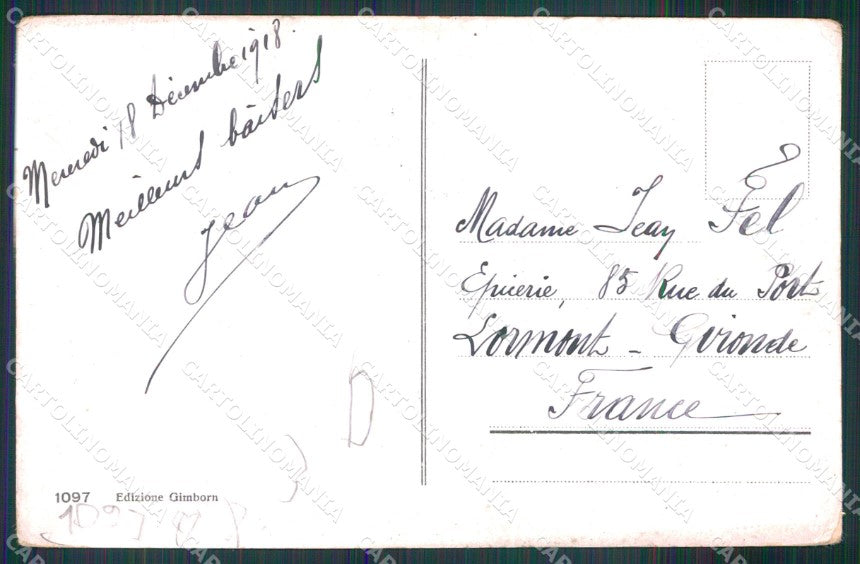 Mercredi 18 Décembre 1918.
Meilleurs baisers
Jean
Madame Jean Fel
Epicerie, 85 Rue du Port
Lormont - Gironde
France
D
1097 Edizione Gimborn
1097
CARTOLINOMANIA